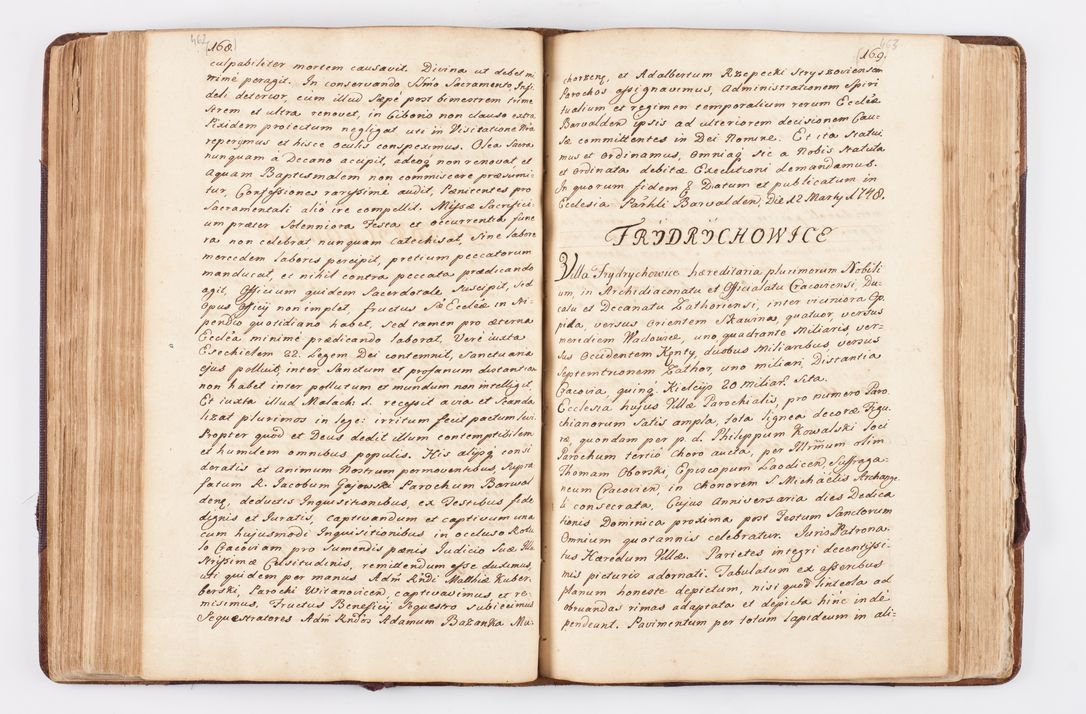 462
168.
culpabiliter mortem causavit. Divina ut debet mi
nime peragit. In conservando SSmo Sacramento Infi
deli deterior, cum illud sæpé post bimestrem trime
strem et ultra renovet, in Ciborio non clauso extra
Pixidem proiectum negligat uti in Visitatione Nra
reperimus et hisce oculis conspeximus. Olea Sacra
nunquam á Decano accipit, adeoq non renovat et
aquam Baptismalem non commiscere præsumi
tur, Confessiones rarissimé audit, Pænitentes pro
Sacramentali alió ire compellit. Missæ Sacrifici
um præter Solenniora Festa et occurrentia fune
ra non celebrat nunquam Catechisat, Sine labore
mercedem laboris percipit, pretium peccatorum
manducat, et nihil contra peccata prædicando
agit, Officium quidem Sacerdotale Suscipit, sed
opus officij non implet, fructus Sæ Ecclæ in sti-
pendio quotidiano habet, sed tamen pro æterna
Ecclea minimé prædicando laborat. Veré iuxta
Ezechielem 22. Legem Dei contemnit, Sanctuaria
ejus polluit, inter Sanctum et profanum distantiam
non habet inter pollutum et mundum non intelligit,
Et iuxta illud Malach: 2. recessit a via et Scanda
lizat plurimos in lege: irritum fecit pactum Levi.
Propter quod et Deus dedit illum contemptibilem
et humilem omnibus populis. His alijsq consi
deratis et animum Nostrum permoventibus, supra
fatum R. Iacobum Gajowski Parochum Barwal
denz, deductis Inquisitionibus, ex Testibus fide
dignis et Iuratis, captivandum et captivum una
cum hujusmodi Inquisitionibus in occluso Rotu
lo Cracoviam pro Sumendis pænis Iudicio Suæ Illu
strissimæ Celsitudinis, remittendum esse duximus,
uti quidem per manus Adm Rndi Matthiæ Kuber-
berski, Parochi Witanovicen, captivavimus et re-
misimus. Fructus Beneficij Sequestro subiecimus
Sequestratores Adm Rndos Adamum Bazanka Mu-
463
169.
charzenz, et Adalbertum Rzepecki Stryszoviensem
Parochos assignavimus, Administrationem Spiri
tualium et regimen temporalium rerum Ecclæ
Barwalden ipsis ad ulteriorem decisionem Cau-
sæ committentes in Dei Nomine. Et ita statui
mus et ordinamus, omniaq sic a Nobis statuta
et ordinata debitæ Executioni demandamus.
In quorum fidem & Datum et publicatum in
Ecclesia Pachli Barwalden, Die 12 Martij 1748.
FRYDRYCHOWICE
Villa Frydrychowice hæreditaria plurimorum Nobili
um, in Archidiaconatu et Officialatu Cracoviensi, Du-
catu et Decanatu Zathoriensi, inter viciniora Op
pida, versus Orientem Skawina, quatuor, versus
meridiem Wadowice, uno quadrante Miliaris, ver-
sus Occidentem Kęnty, duobus Miliaribus, versus
Septemtrionem Zathor, uno miliari, Distantia
Cracovia, quinq Kielcijs 20 miliar. Sita.
Ecclesia hujus Villæ Parochialis, pro numero Paro
chianorum satis ampla, tota lignea decoræ Figu
ræ, quondam per p. d. Philippum Kowalski Loci
Parochum tertio Choro aucta, per Illrmum olim
Thomam Oborski, Episcopum Laodicen, Suffraga-
neum Cracovien, in chonorem S. Michaelis Archange
li consecrata, Cujus Anniversaria dies Dedica
tionis Dominica proxima post Festum Sanctorum
Omnium quotannis celebratur. Juris Patrona-
tus Hæredum Villæ. Parietes integri decentissi-
mis picturis adornati. Tabulatum ex asseribus
planum honeste depictum, nisi quod linteola ad
obruandas rimas adaptata et depicta hinc inde
pendeunt. Pavimentum per totum lapideum in ali-